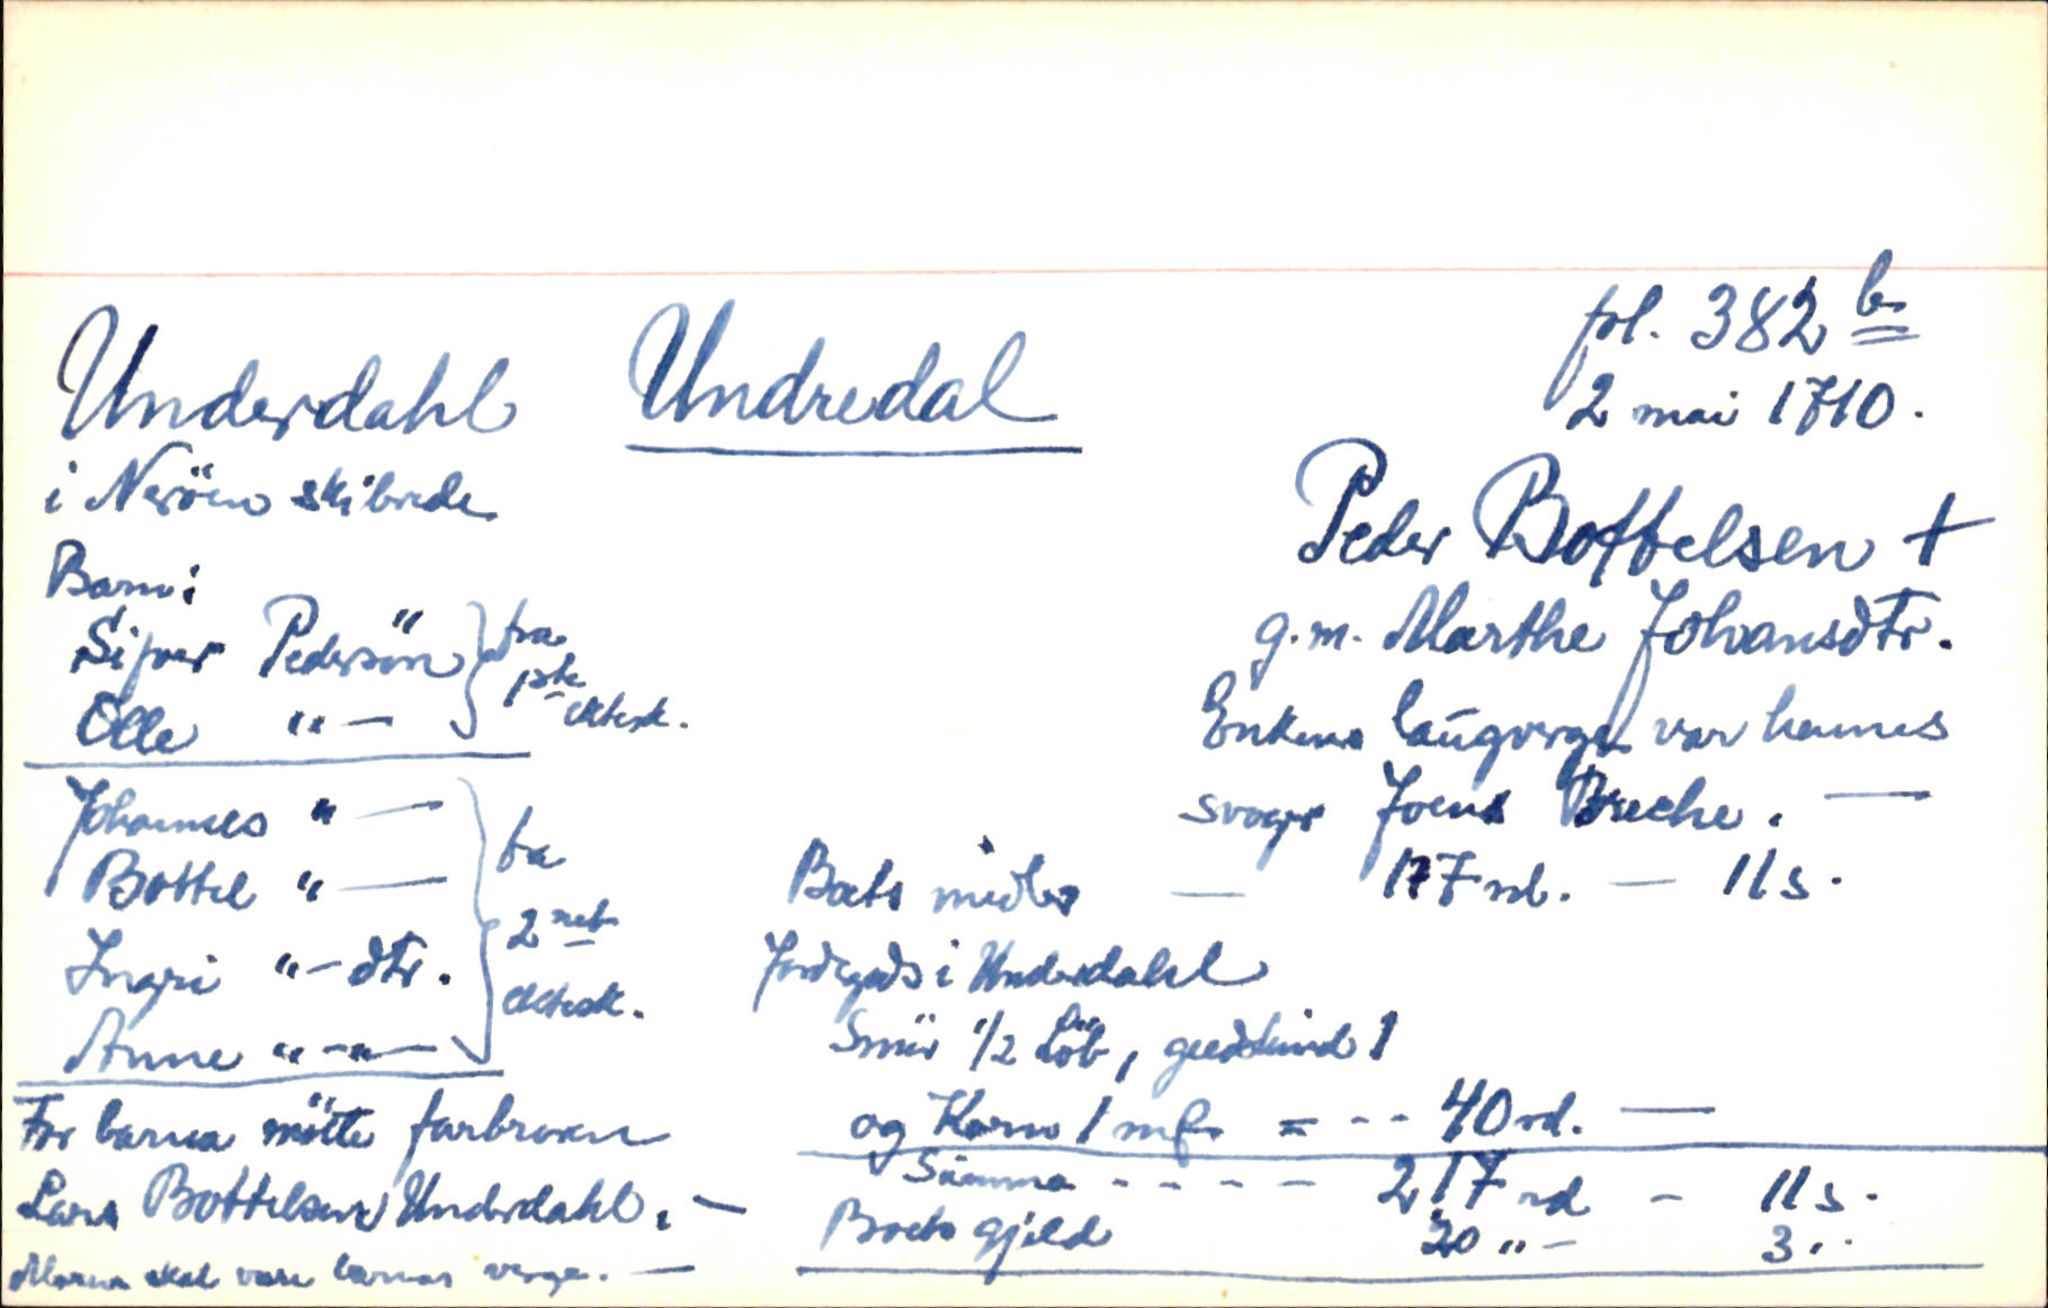 fol. 382 b
Underdahl Undredal
2 mai 1710.
i Neröens skibrede
Peder Bottelsen †
g.m. Marthe Johansdtr.
Enkens laugverge var hennes
svoger Joens Breche. —
Barn:
Sifver Pedersön } fra
Olle " — } 1ste ektesk.
Johannes " —
Bottel " — } fra
Ingri " – dtr. } 2net
Anne " – " — } ektesk.
For barna mötte farbroren
Lars Bottelsen Underdahl. —
Moren skal være barnas verge. —
Boets midler — 177 rd. — 11 s.
Jordegods i Underdahl
Smör 1/2 Löb, giedskind 1
og Korn 1 mæ = - - 40 rd. —
Summa - - - - 217 rd – 11 s.
Boets gjeld 20 " – 3 "